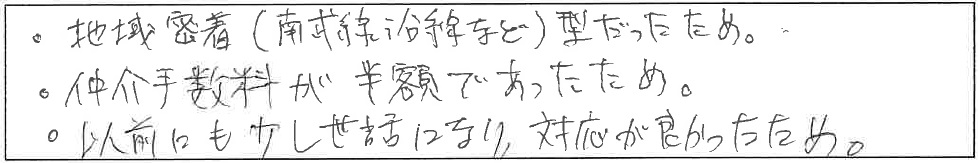 。地域密着（南武線沿線など）型だったため。
。仲介手数料が半額であったため。
。以前にも少し世話になり、対応が良かったため。